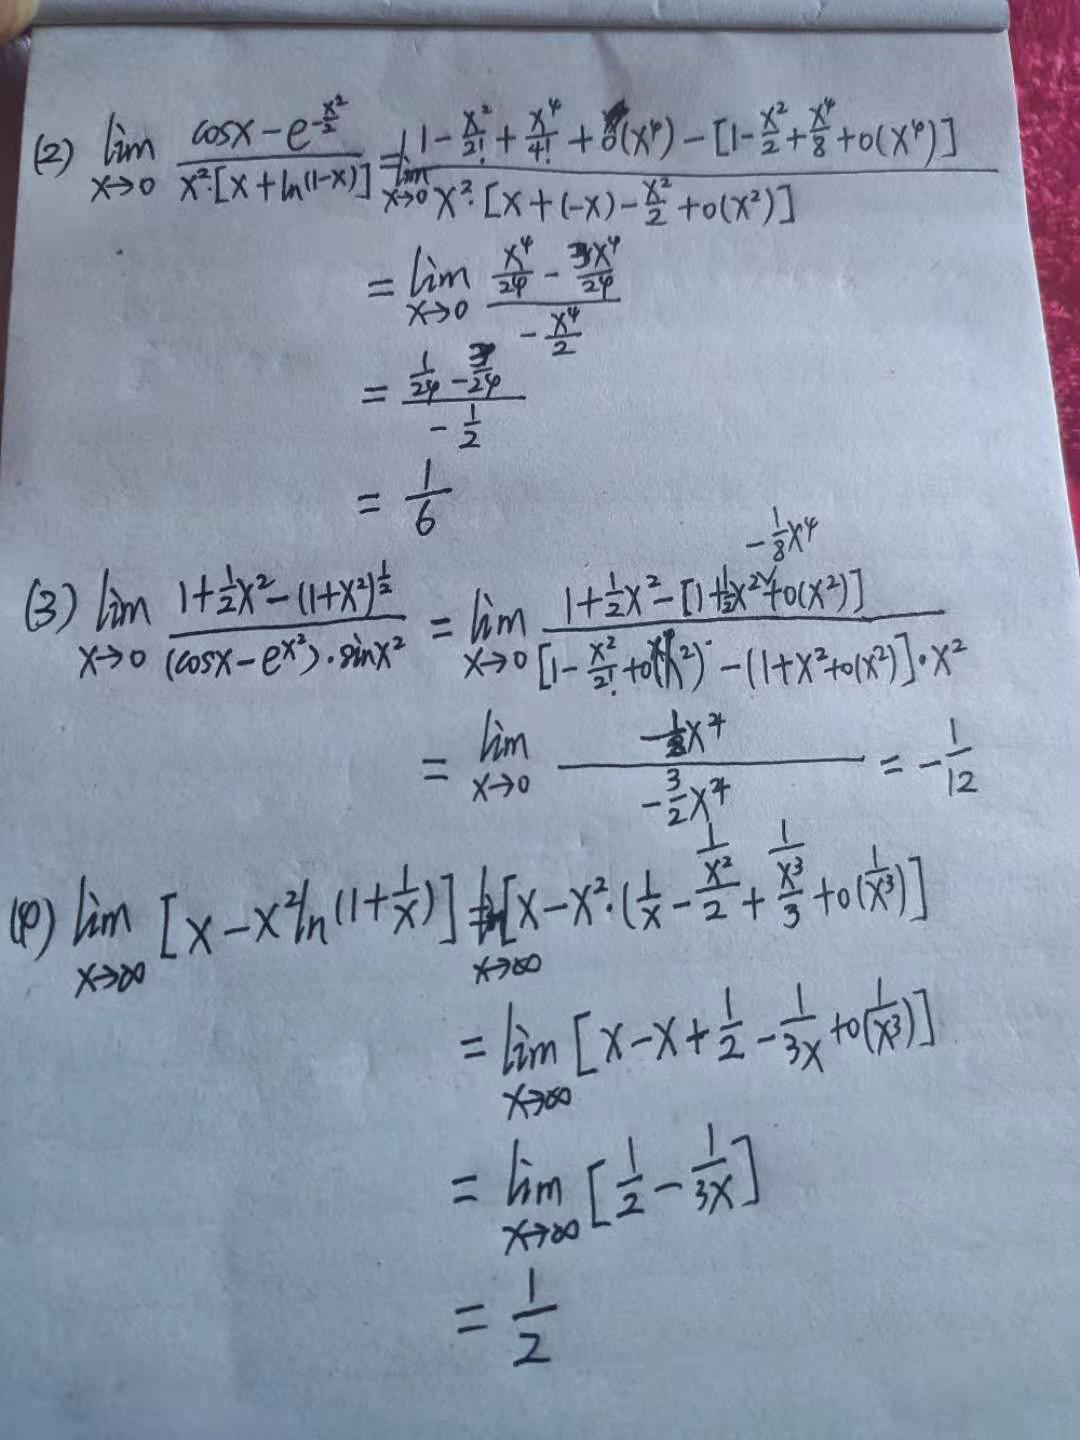 (2) lim x→0 (cosx − e^(−x²/2)) / (x²·[x + ln(1−x)]) = lim x→0 (1 − x²/2! + x⁴/4! + o(x⁴) − [1 − x²/2 + x⁴/8 + o(x⁴)]) / (x²·[x + (−x) − x²/2 + o(x²)])
= lim x→0 (x⁴/24 − 3x⁴/24) / (−x⁴/2)
= (1/24 − 3/24) / (−1/2)
= 1/6
(3) lim x→0 (1 + ½x² − (1+x²)^½) / ((cosx − e^(x²))·sinx²) = lim x→0 (1 + ½x² − [1 + ½x² − ⅛x⁴ + o(x²)]) / ([1 − x²/2! + o(x²) − (1 + x² + o(x²)]·x²)
= lim x→0 / (−3/2 x⁴) = −1/12
(4) lim x→∞ [x − x²ln(1 + 1/x)] = lim x→∞ [x − x²·(1/x − (1/x²)/2 + (1/x³)/3 + o(1/x³)]
= lim x→∞ [x − x + 1/2 − 1/3x + o(1/x³)]
= lim x→∞ [1/2 − 1/3x]
= 1/2